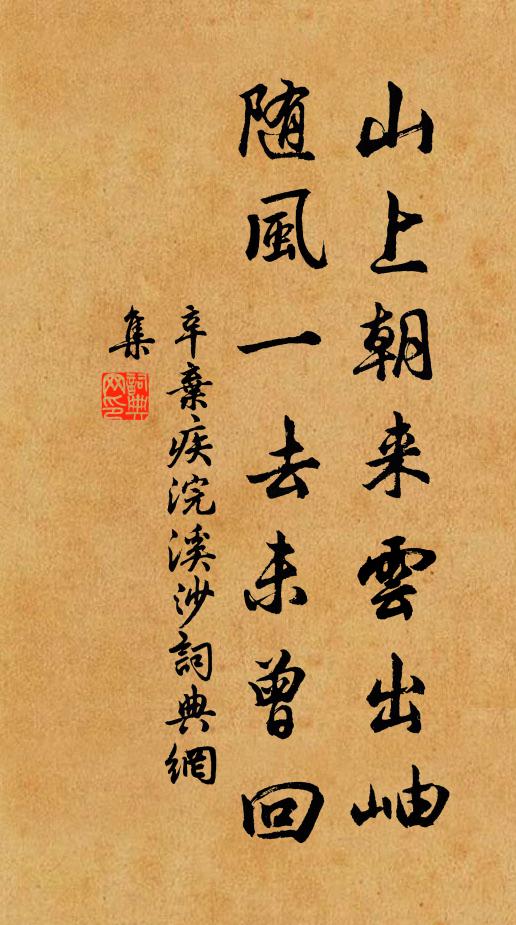 山上朝来雲出岫
随風一去未曾回
辛棄疾浣溪沙詞典網
集
詞典网印